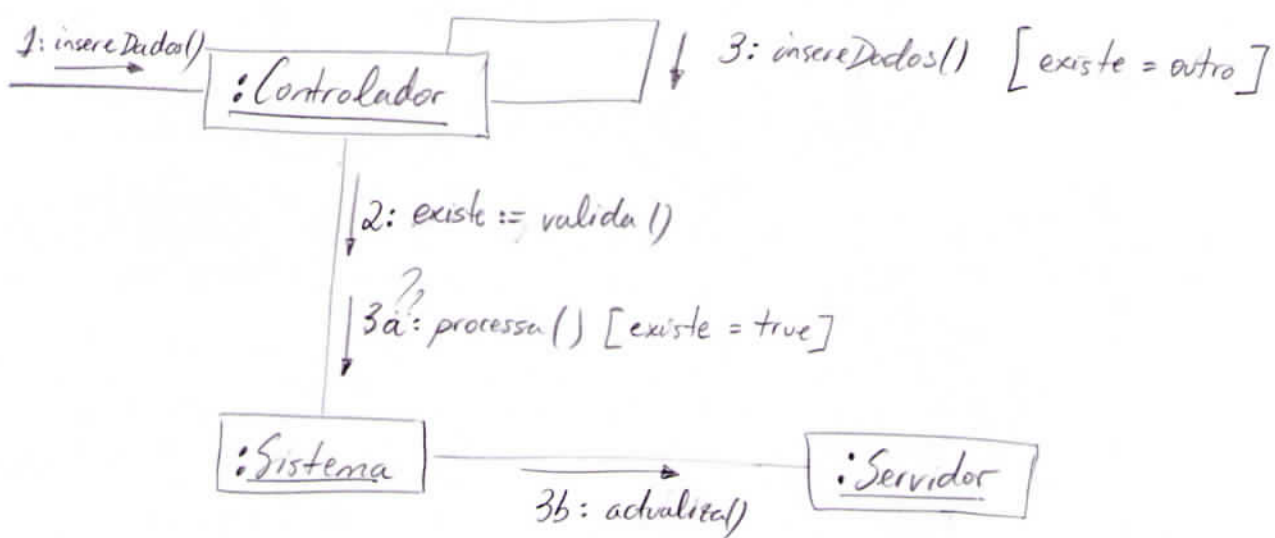 1: insereDados()
:Controlador
3: insereDados() [existe = outro]
2: existe := valida()
??
3a: processa() [existe = true]
:Sistema
:Servidor
3b: actualiza()